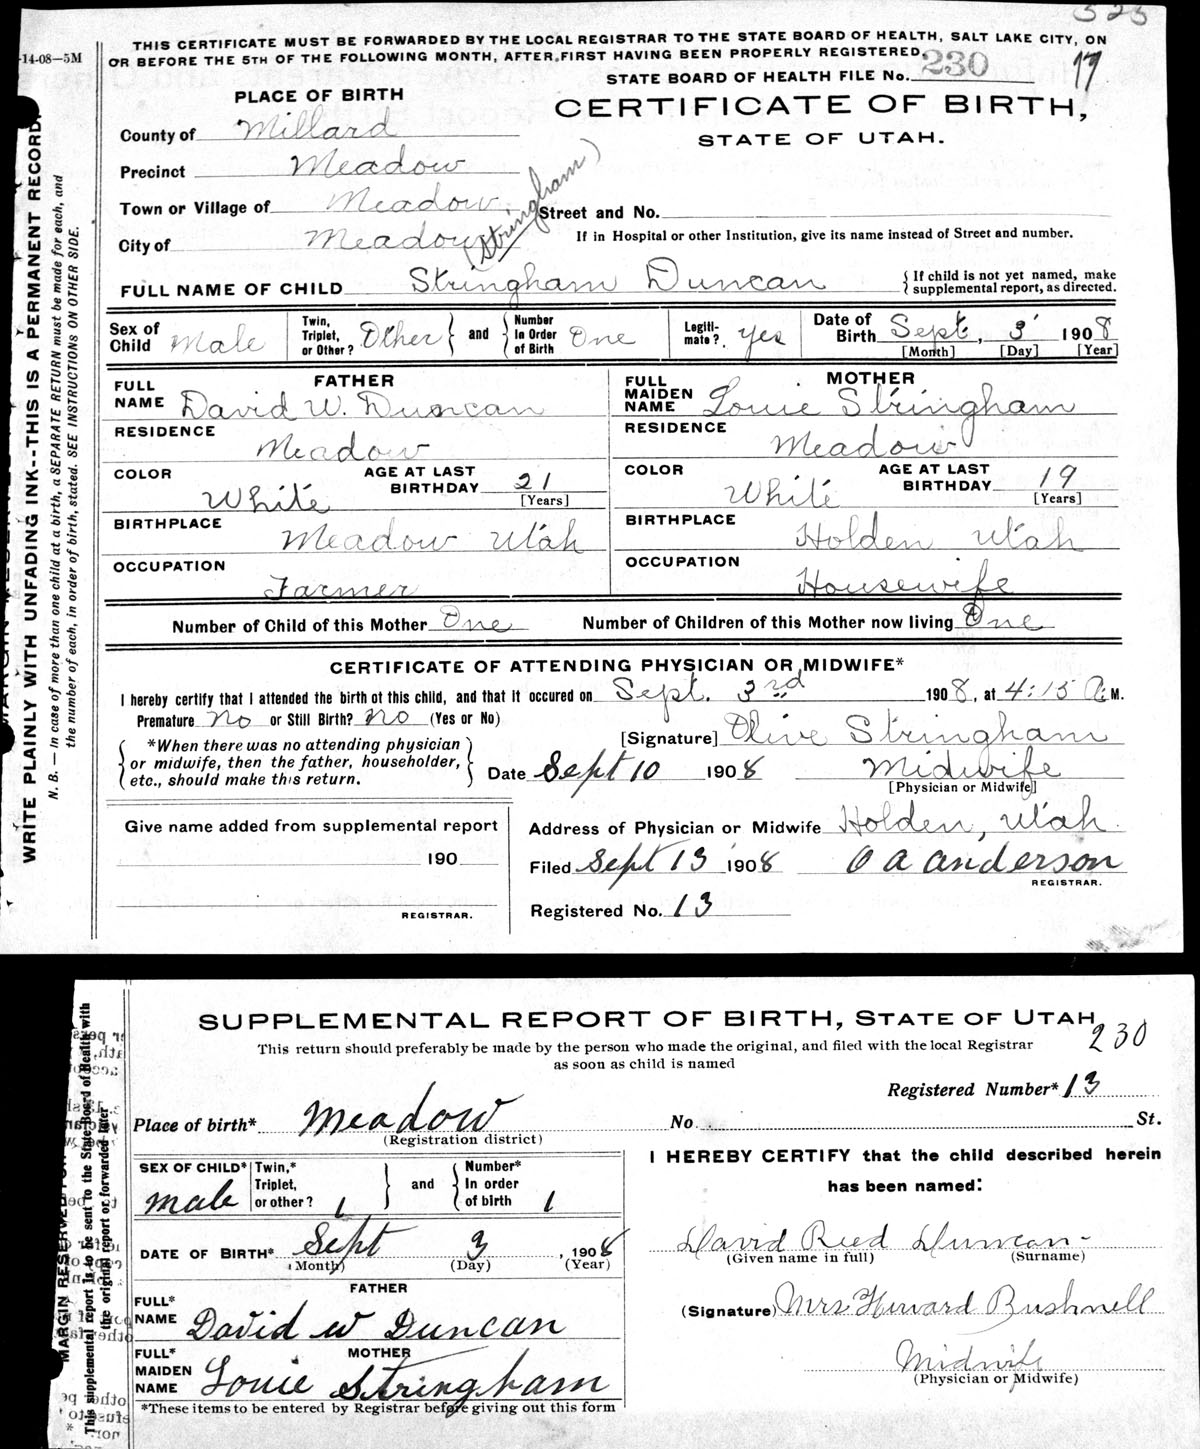 323
-14-08—5M
THIS CERTIFICATE MUST BE FORWARDED BY THE LOCAL REGISTRAR TO THE STATE BOARD OF HEALTH, SALT LAKE CITY, ON
OR BEFORE THE 5TH OF THE FOLLOWING MONTH, AFTER FIRST HAVING BEEN PROPERLY REGISTERED
STATE BOARD OF HEALTH FILE No. 230 17
PLACE OF BIRTH
CERTIFICATE OF BIRTH,
STATE OF UTAH.
County of Millard
Precinct Meadow
Town or Village of Meadow Street and No.
City of Meadow (Stringham)
If in Hospital or other Institution, give its name instead of Street and number.
FULL NAME OF CHILD Stringham Duncan { If child is not yet named, make supplemental report, as directed.
Sex of Child Male Twin, Triplet, or Other? Other } and { Number In Order of Birth One Legiti-mate? Yes Date of Birth Sept. 3 1908
[Month] [Day] [Year]
FATHER
FULL NAME David W. Duncan
RESIDENCE Meadow
COLOR White AGE AT LAST BIRTHDAY 21 [Years]
BIRTHPLACE Meadow Utah
OCCUPATION Farmer
MOTHER
FULL MAIDEN NAME Louie Stringham
RESIDENCE Meadow
COLOR White AGE AT LAST BIRTHDAY 19 [Years]
BIRTHPLACE Holden Utah
OCCUPATION Housewife
Number of Child of this Mother One Number of Children of this Mother now living One
CERTIFICATE OF ATTENDING PHYSICIAN OR MIDWIFE*
I hereby certify that I attended the birth of this child, and that it occured on Sept. 3rd 1908, at 4:15 A.M.
Premature No or Still Birth? No (Yes or No)
*When there was no attending physician
or midwife, then the father, householder,
etc., should make this return.
[Signature] Olive Stringham
Date Sept 10 1908 Midwife
[Physician or Midwife]
Give name added from supplemental report
190
REGISTRAR.
Address of Physician or Midwife Holden, Utah.
Filed Sept 13 1908 O A Anderson
REGISTRAR.
Registered No. 13
WRITE PLAINLY WITH UNFADING INK--THIS IS A PERMANENT RECORD.
N. B. — In case of more than one child at a birth, a SEPARATE RETURN must be made for each, and
the number of each, in order of birth, stated. SEE INSTRUCTIONS ON OTHER SIDE.
SUPPLEMENTAL REPORT OF BIRTH, STATE OF UTAH
230
This return should preferably be made by the person who made the original, and filed with the local Registrar
as soon as child is named
Registered Number* 13
Place of birth* Meadow No. St.
(Registration district)
SEX OF CHILD* male Twin,* Triplet, or other? 1 } and { Number* In order of birth 1
DATE OF BIRTH* Sept 3, 1908
(Month) (Day) (Year)
FATHER
FULL* NAME David W Duncan
MOTHER
FULL* MAIDEN NAME Louie Stringham
*These items to be entered by Registrar before giving out this form
I HEREBY CERTIFY that the child described herein
has been named:
David Reed Duncan-
(Given name in full) (Surname)
(Signature) Mrs Howard Bushnell
Midwife
(Physician or Midwife)
MARGIN RESERVED FOR
This supplemental report is to be sent to the State Board of Health with
the original report or forwarded later